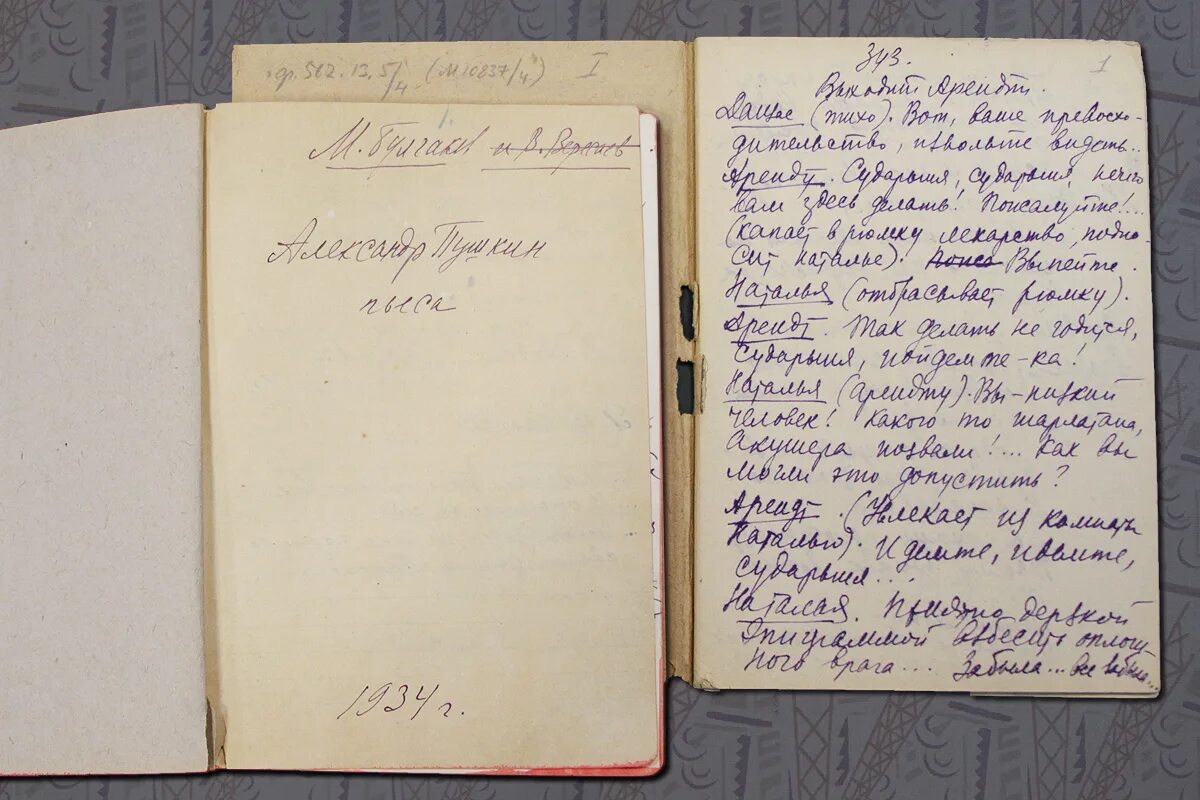 ф. 562. 12. 5/4 (М10837/4) I
М. Булгаков и В. Вересаев
Александр Пушкин
пьеса
1934 г.
343. 1
Выходит Арендт.
Данзас (тихо). Вот, ваше превосхо-
дительство, извольте видеть..
Арендт. Сударыня, сударыня, нечего
вам здесь делать! Пожалуйте!...
(капает в рюмку лекарство, подно-
сит Наталье). Выпейте.
Наталья (отбрасывает рюмку).
Арендт. Так делать не годится,
сударыня, пойдемте-ка!
Наталья (Арендту). Вы - низкий
человек! Какого то шарлатана,
акушера позвали!... Как вы
могли это допустить?
Арендт. (Увлекает из комнаты
Наталью). Идемте, идемте,
сударыня...
Наталья. Приятно дерзкой
эпиграммой взбесить оплош-
ного врага... Забыла... все забыла...